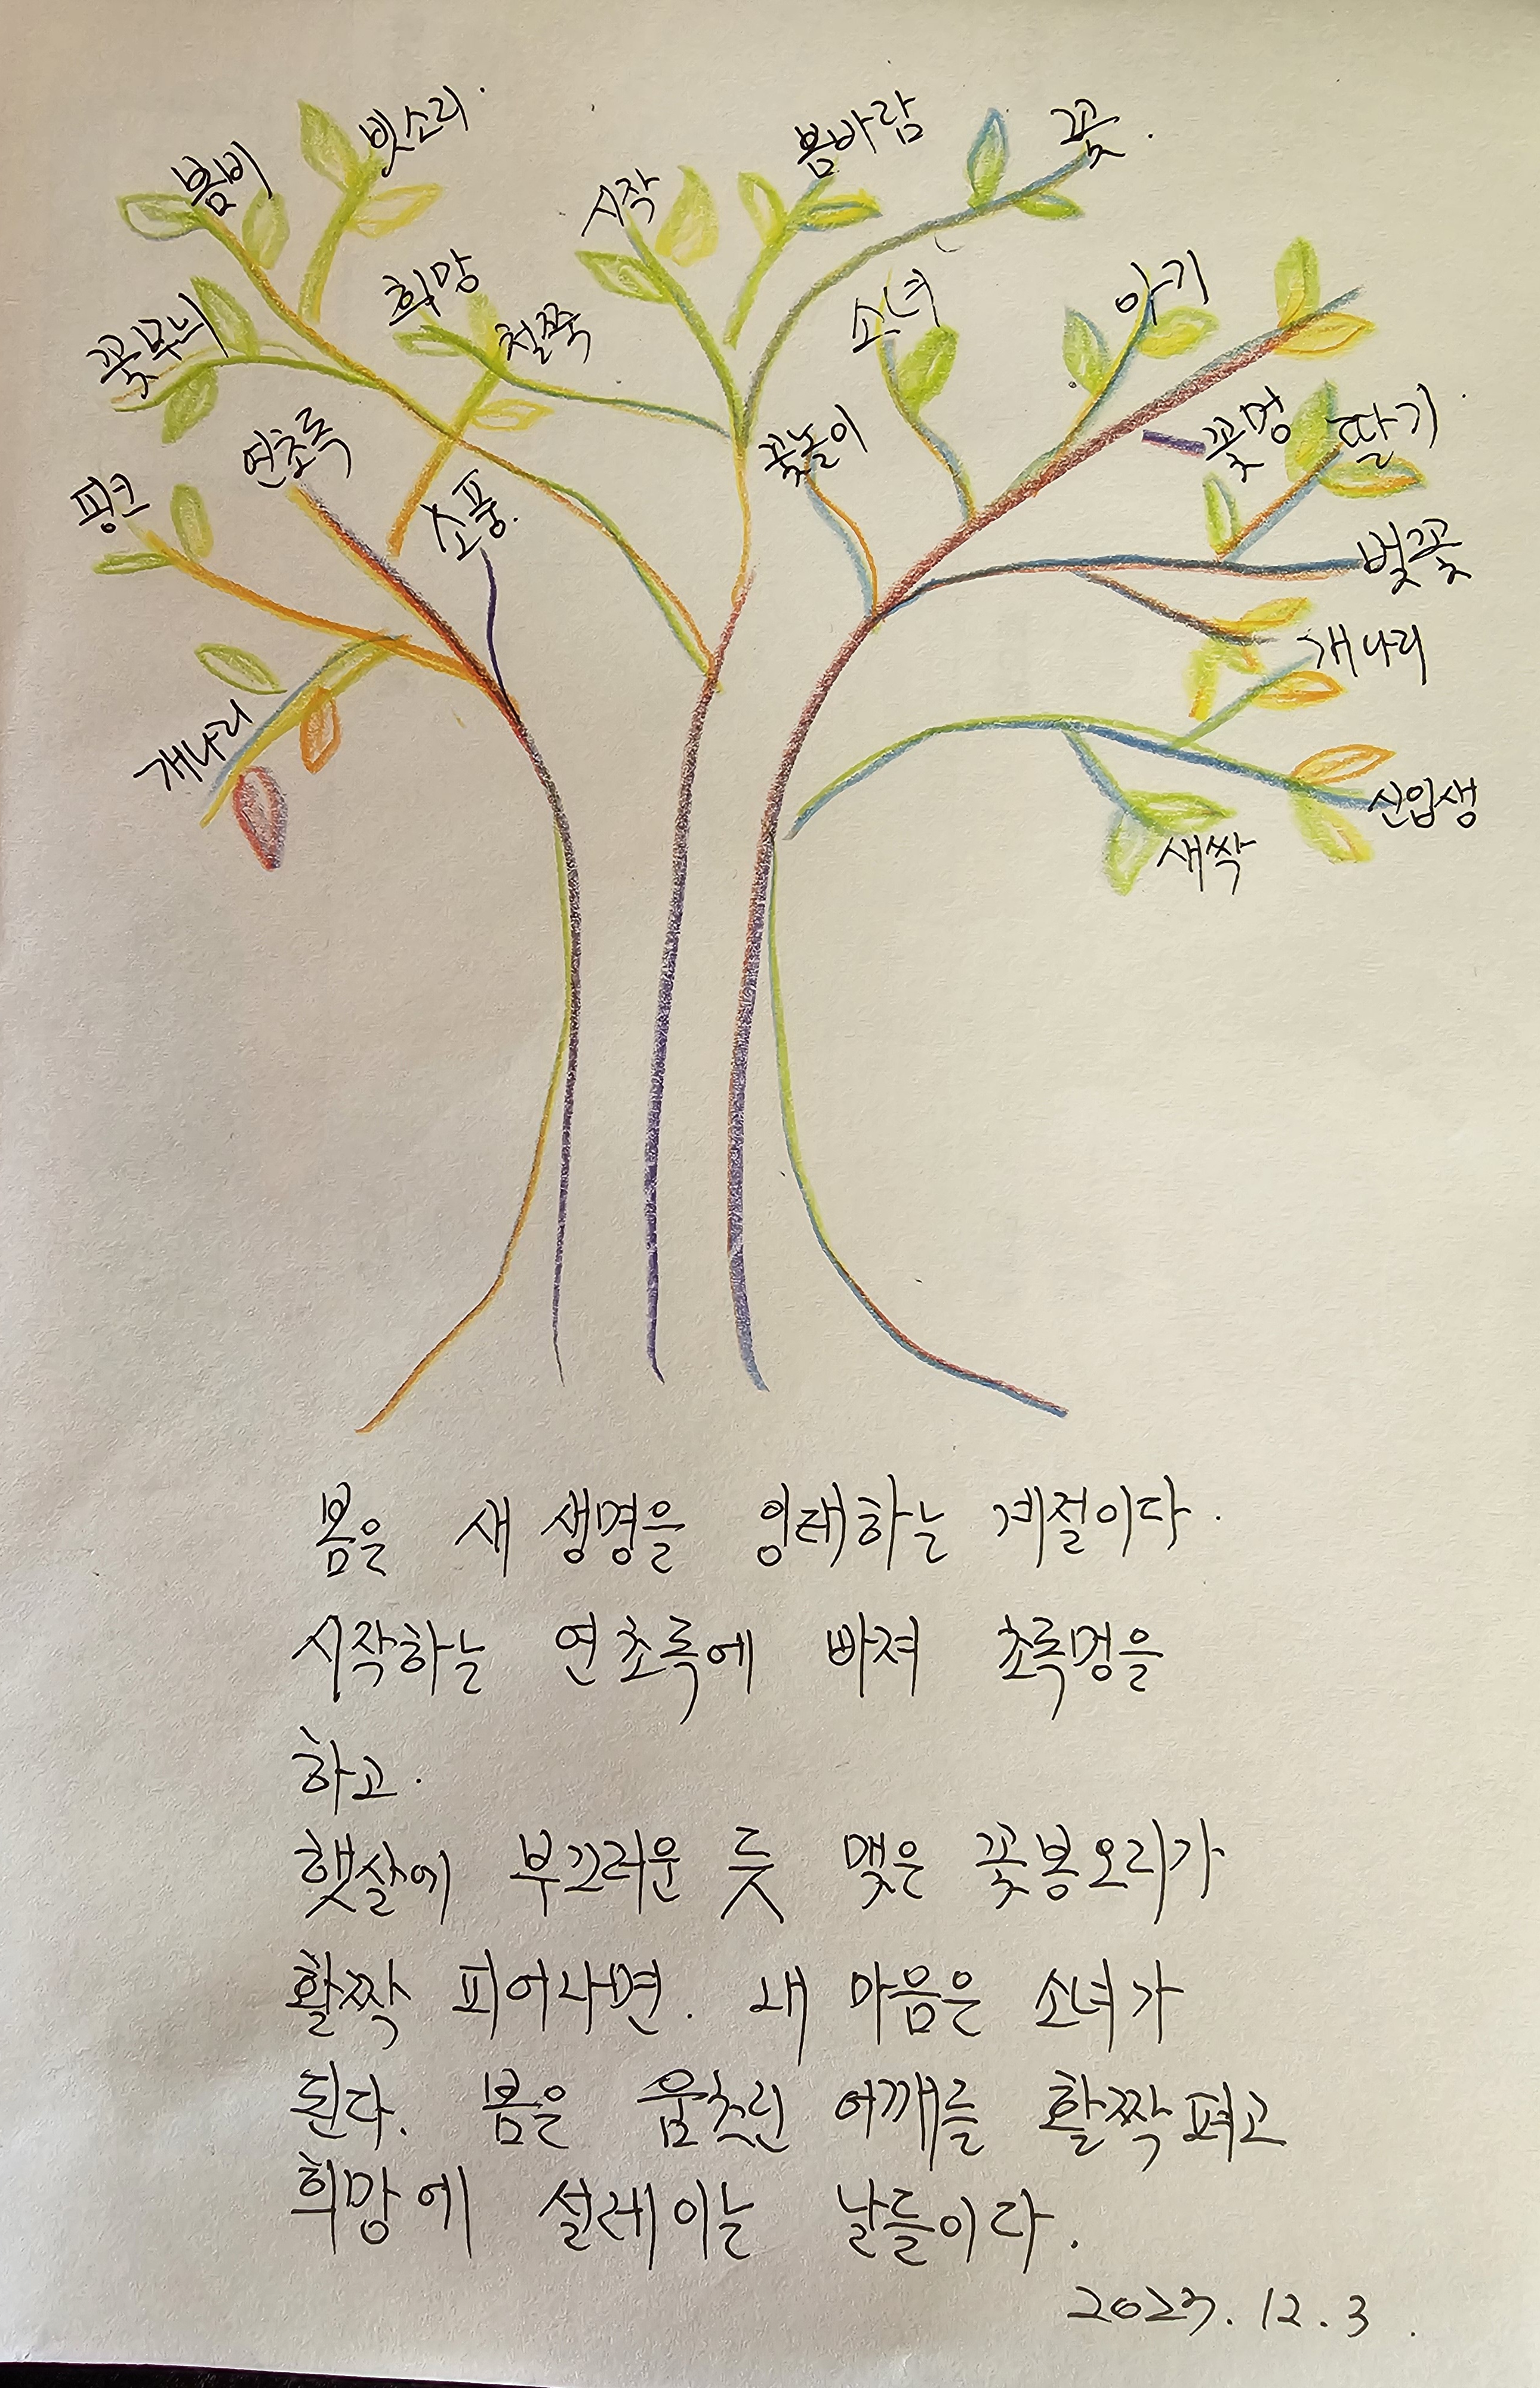 빗소리.
봄비
봄바람
꽃.
시작
희망
소녀
아기
꽃무늬
철쭉
연초록
꽃놀이
꽃멍
딸기
핑크
소풍.
벚꽃
개나리
개나리
신입생
새싹
봄은 새 생명을 잉태하는 계절이다.
시작하는 연초록에 빠져 초록멍을
하고.
햇살에 부끄러운 듯 맺은 꽃봉오리가
활짝 피어나면. 내 마음은 소녀가
된다. 봄은 움츠린 어깨를 활짝 펴고
희망에 설레이는 날들이다.
2023. 12. 3.